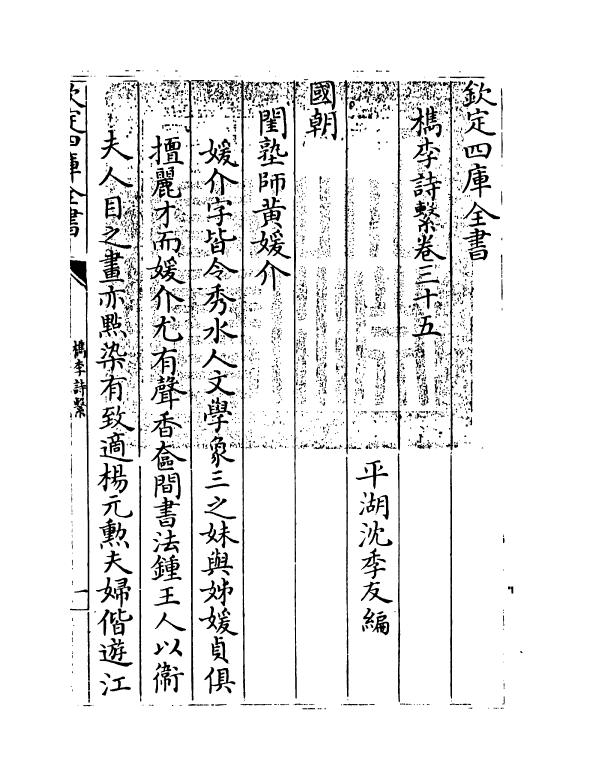 欽定四庫全書
檇李詩繫卷三十五
平湖沈季友編
國朝
閨塾師黃媛介
媛介字皆令秀水人文學象三之妹與姊媛貞俱
擅麗才而媛介尤有聲香奩間書法鍾王人以衛
夫人目之畫亦點染有致適楊元勲夫婦偕遊江
欽定四庫全書
檇李詩繫
一